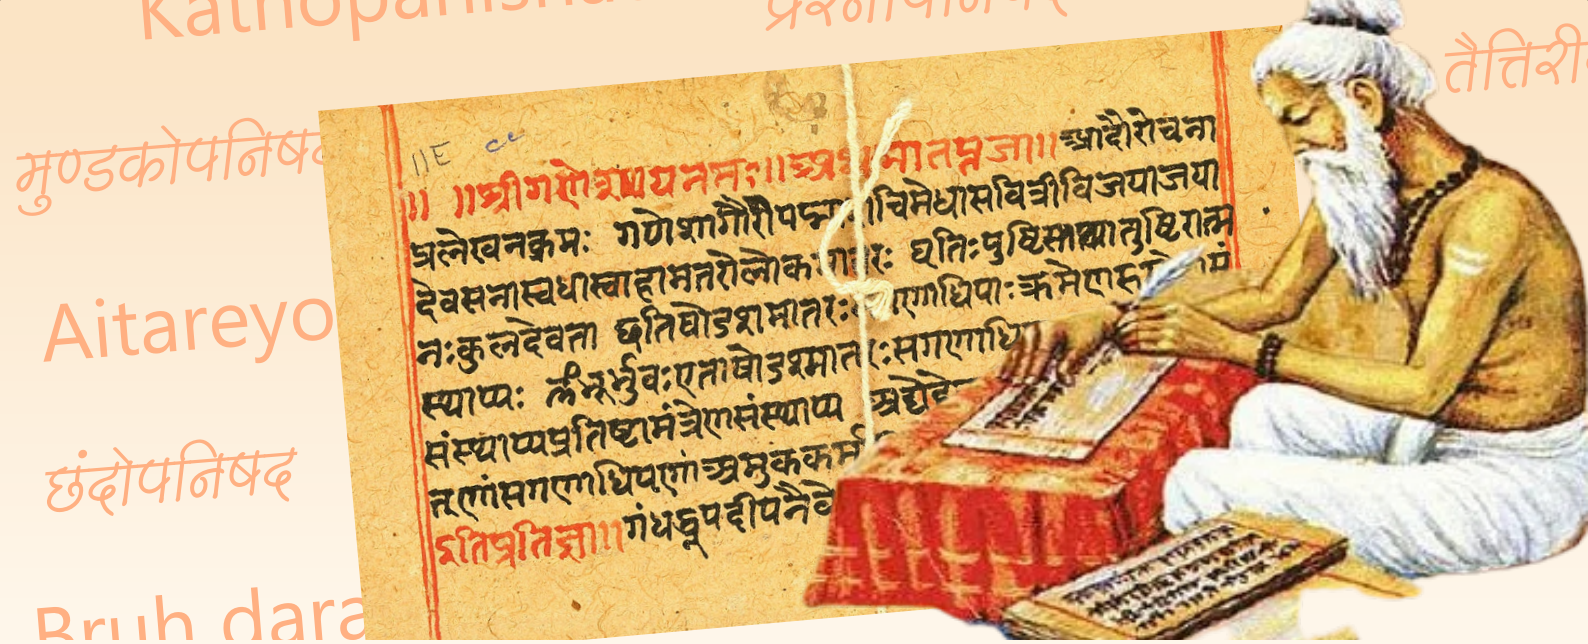 मुण्डकोपनिषद
Aitareyo
छंदोपनिषद
Bruh dara
तैत्तिरी
॥ ॥श्रीगणेशाययनमः॥अथ मातपूजा॥आदौरोचना
प्रलेखनक्रमः गणेशागौरीपद्मा चिमेधासवित्रीविजयाजया
देवसेनास्वधास्वाहामातरोलोकमातरः धृतिःपुष्टिस्तथातुष्टिरात्म
नःकुलदेवता छतिषोडशमातरः गणाधिपाःक्रमेण
स्थाप्यः भूर्भुवःएताषोडशमातरःसगणाधि
संस्थाप्यप्रतिष्टामंत्रेणसंस्थाप्य अद्येहे
तृणांसगणाधिपाणांअमुककर्म
इतिप्रतिज्ञा॥गंधधूपदीपनैवे